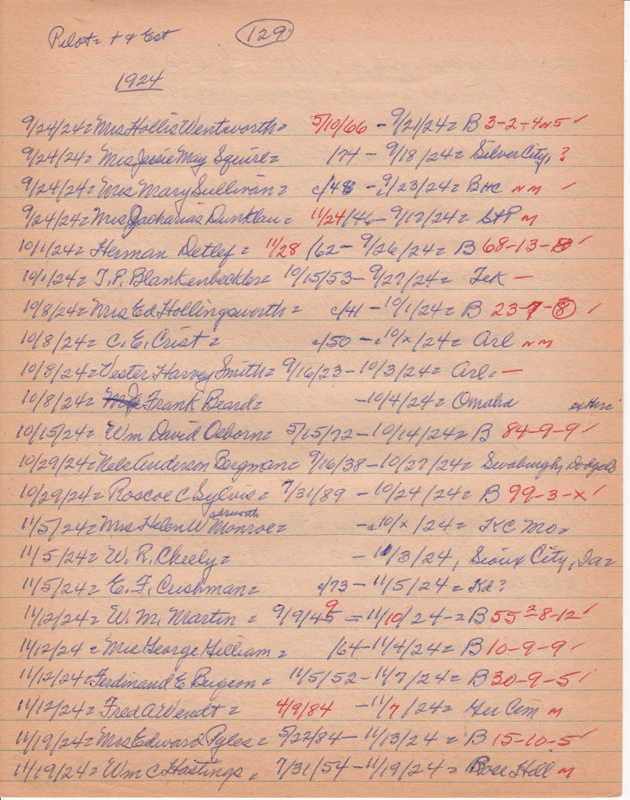 Pilot = + & Est (129)
1924
9/24/24 = Mrs Hollis Wentworth = 5/10/66 - 9/21/24 = B 3-2-4 or 5 ✓
9/24/24 = Mrs Jessie May Squire = /74 - 9/18/24 = Silver City, ?
9/24/24 = Mrs Mary Sullivan = c/48 - 9/23/24 = BHC NM ✓
9/24/24 = Mrs Zacharias Dunklau = 11/24/46 - 9/17/24 = M
10/1/24 = Herman Detlef = 11/28/62 - 9/26/24 = B 68-13-8 ✓
10/1/24 = T.P. Blankenbeckler = 10/15/53 - 9/27/24 = Tek -
10/8/24 = Mrs Ed Hollingsworth = c/41 - 10/1/24 = B 23-7-8 ✓
10/8/24 = C. E. Crist = c/50 - c 10/x/24 = Arl NM
10/8/24 = Vester Harvey Smith = 9/16/23 - 10/3/24 = Arl = -
10/8/24 = Frank Beard = - 10/4/24 = Omaha
10/15/24 = Wm David Osborn = 5/15/72 - 10/14/24 = B 84-9-9 ✓
10/29/24 = Nels Anderson Bergman = 9/16/38 - 10/27/24 = Swaburgh, Dodge
10/29/24 = Roscoe C Sylvis = 7/31/89 - 10/24/24 = B 99-3-x ✓
11/5/24 = Mrs Helen Wadsworth Monroe = - c 10/x/24 = KC Mo =
11/5/24 = W. R. Cheely = - 11/3/24, Sioux City, Ia =
11/5/24 = E. F. Cushman = c/73 - 11/5/24 = Ks?
11/12/24 = W. M. Martin = 9/9/49 = 11/10/24 = B 55-8-12 ✓
11/12/24 = Mrs George Gilliam = /64 - 11/4/24 = B 10-9-9 ✓
11/12/24 = Ferdinand E Bugeon = 11/5/52 - 11/7/24 = B 30-9-5 ✓
11/12/24 = Fred A Wendt = 4/9/84 - 11/7/24 = Ger Cem M
11/19/24 = Mrs Edward Pyles = 5/22/84 - 11/13/24 = B 15-10-5 ✓
11/19/24 = Wm C Hastings = 7/31/54 - 11/19/24 = Rose Hill M